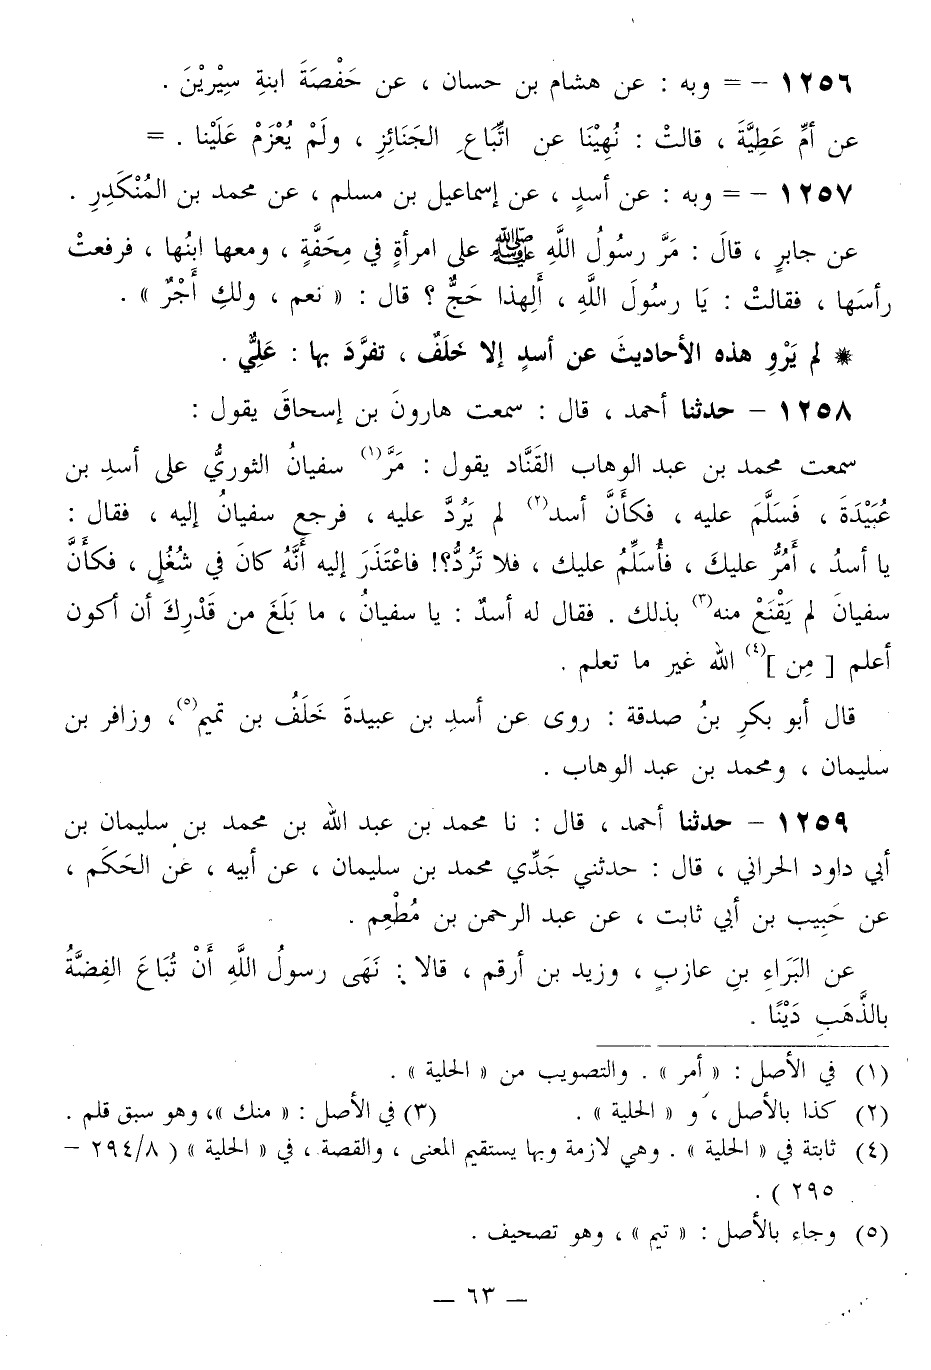 ١٢٥٦ - = وبه : عن هشام بن حسان ، عن حَفْصَةَ ابنةِ سِيْرِيْنَ .
عن أمِّ عَطِيَّةَ ، قالتْ : نُهِيْنَا عن اتِّبَاعِ الجَنَائِزِ ، ولَمْ يُعْزَمْ عَلَيْنا . =
١٢٥٧ - = وبه : عن أسدٍ ، عن إسماعيل بن مسلم ، عن محمد بن المُنْكَدِرِ .
عن جابرٍ ، قالَ : مَرَّ رسُولُ اللَّهِ ﷺ على امرأةٍ في مِحَفَّةٍ ، ومعها ابنُها ، فرفعتْ
رأسَها ، فقالتْ : يَا رسُولَ اللَّهِ ، أَلِهذا حَجٌّ ؟ قال : « نعم ، ولكِ أَجْرٌ » .
* لم يَرْوِ هذه الأحاديثَ عن أسدٍ إلا خَلَفٌ ، تفرَّدَ بها : عَلِيٌّ .
١٢٥٨ - حدثنا أحمد ، قال : سمعت هارونَ بن إسحاقَ يقول :
سمعت محمد بن عبد الوهاب القَنَّاد يقول : مَرَّ(١) سفيانُ الثوريُّ على أسدِ بن
عُبَيْدَةَ ، فَسَلَّمَ عليه ، فكأَنَّ أسد(٢) لم يَرُدَّ عليه ، فرجع سفيانُ إليه ، فقال :
يا أسدُ ، أَمُرُّ عليكَ ، فأُسَلِّمُ عليك ، فلا تَرُدُّ؟! فاعْتَذَرَ إليه أَنَّهُ كانَ في شُغُلٍ ، فكأَنَّ
سفيانَ لم يَقْنَعْ منه(٣) بذلك . فقال له أسدٌ : يا سفيانُ ، ما بَلَغَ من قَدْرِكَ أن أكون
أعلم [ مِن ](٤) الله غير ما تعلم .
قال أبو بكرِ بنُ صدقة : روى عن أسدِ بن عبيدةَ خَلَفُ بن تميم(٥)، وزافر بن
سليمان ، ومحمد بن عبد الوهاب .
١٢٥٩ - حدثنا أحمد ، قال : نا محمد بن عبد الله بن محمد بن سليمان بن
أبي داود الحراني ، قال : حدثني جَدِّي محمد بن سليمان ، عن أبيه ، عن الحَكَم ،
عن حَبِيب بن أبي ثابت ، عن عبد الرحمن بن مُطْعِم .
عن البَرَاءِ بنِ عازبٍ ، وزيد بن أرقم ، قالا : نَهَى رسولُ اللَّهِ أَنْ تُبَاعَ الفِضَّةُ
بالذَّهَبِ دَيْنًا .
(١) في الأصل : « أمر » . والتصويب من « الحلية » .
(٢) كذا بالأصل ، و « الحلية » . (٣) في الأصل : « منك »، وهو سبق قلم .
(٤) ثابتة في « الحلية » . وهي لازمة وبها يستقيم المعنى ، والقصة ، في « الحلية » ( ٢٩٤/٨ -
٢٩٥ ) .
(٥) وجاء بالأصل : « تيم » ، وهو تصحيف .
— ٦٣ —